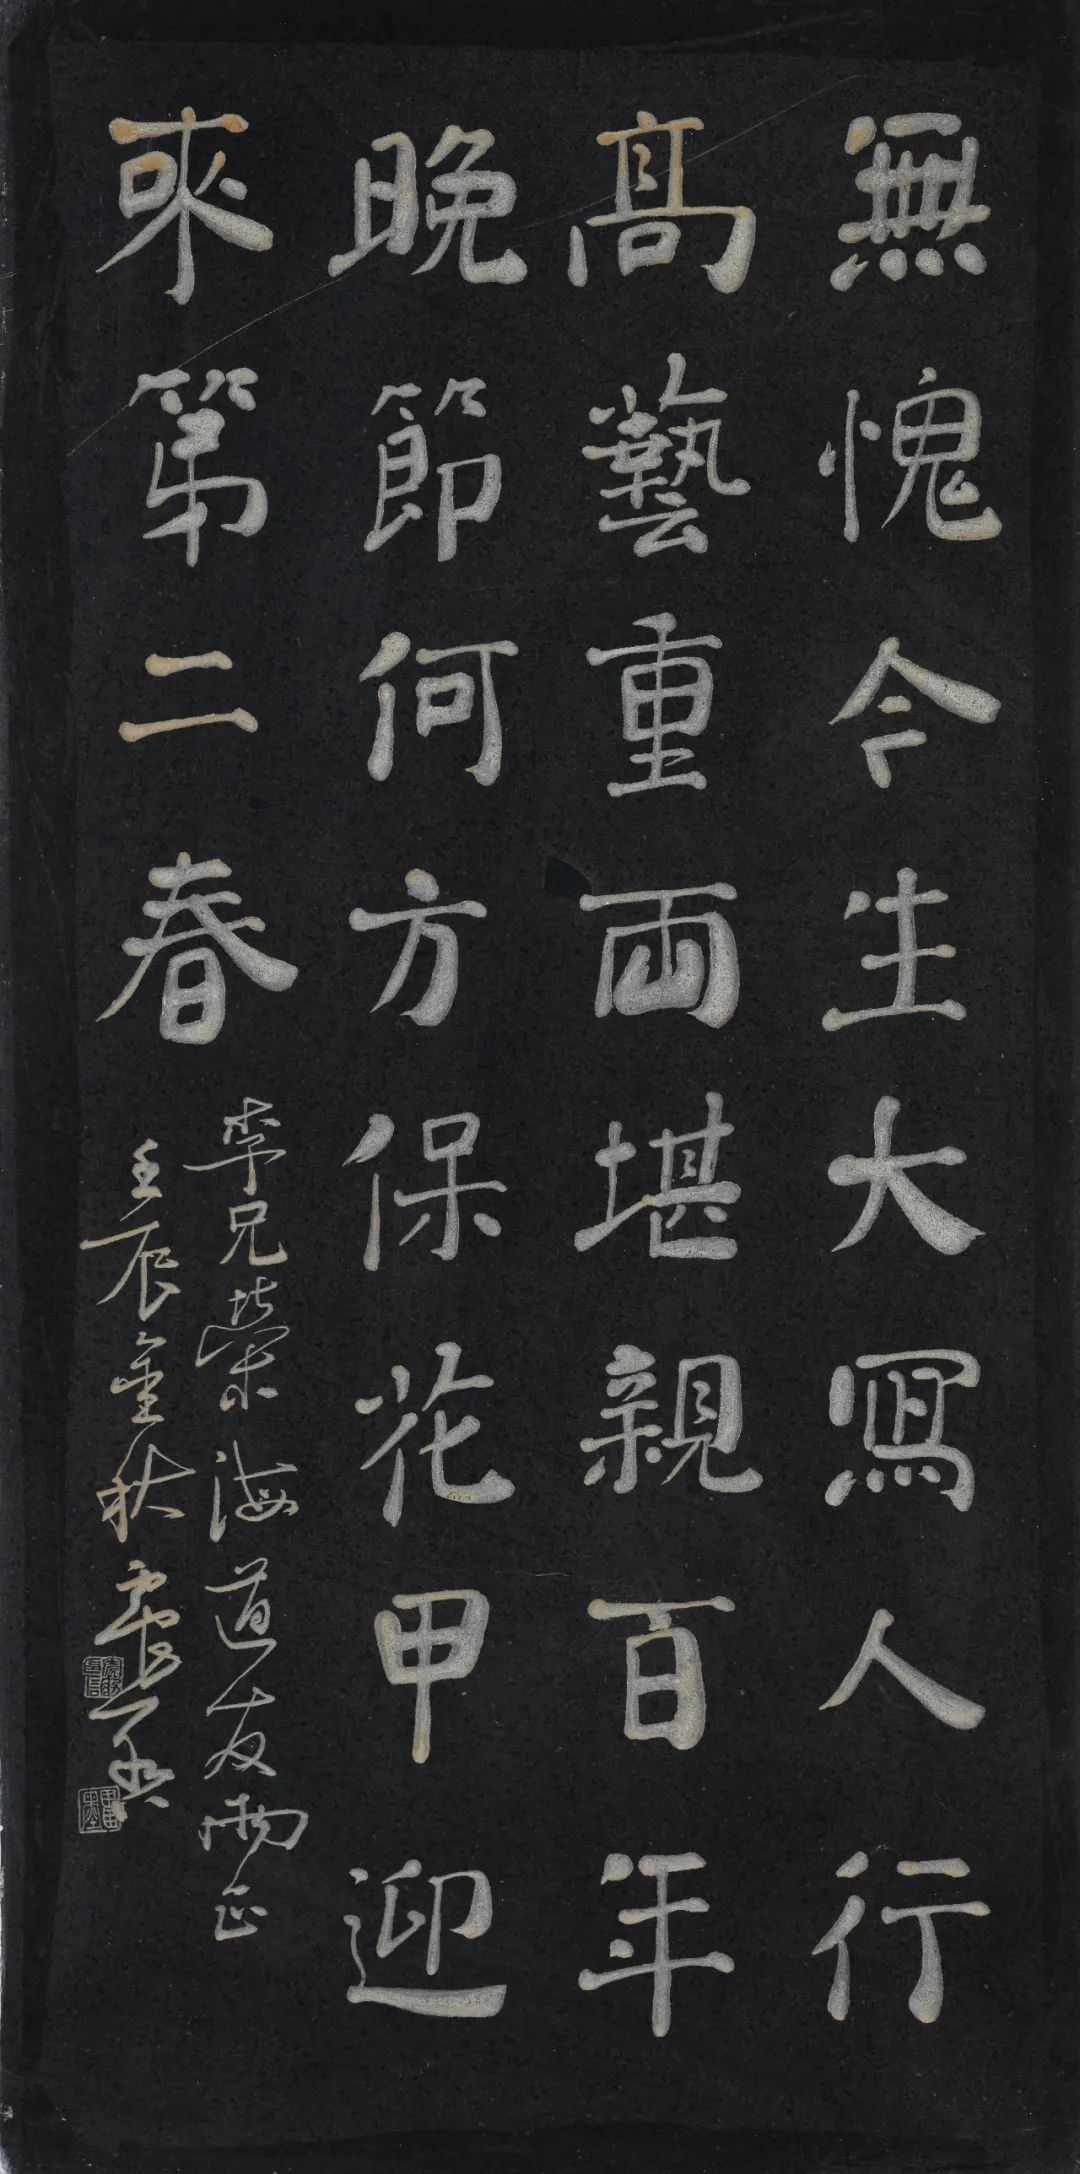 無愧今生大寫人行
高藝重兩堪親百年
晚節何方保花甲迎
來第二春
李兄榮海道友两正
壬辰金秋